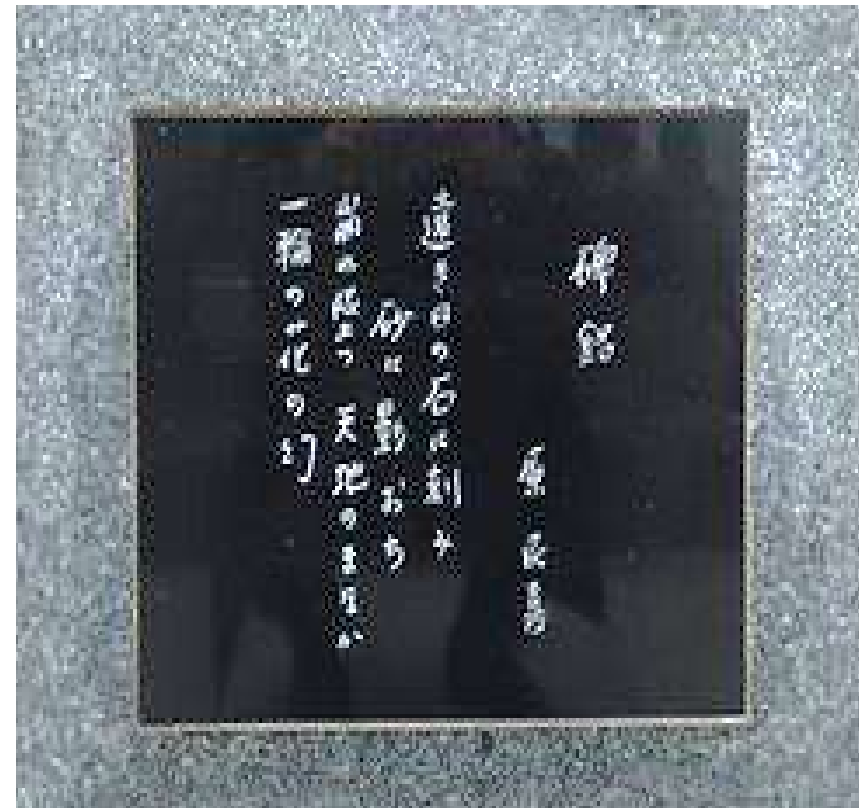 碑銘
原民喜
遠き日の石に刻み
砂に影おち
崩れ墜つ 天地のまなか
一輪の花の幻